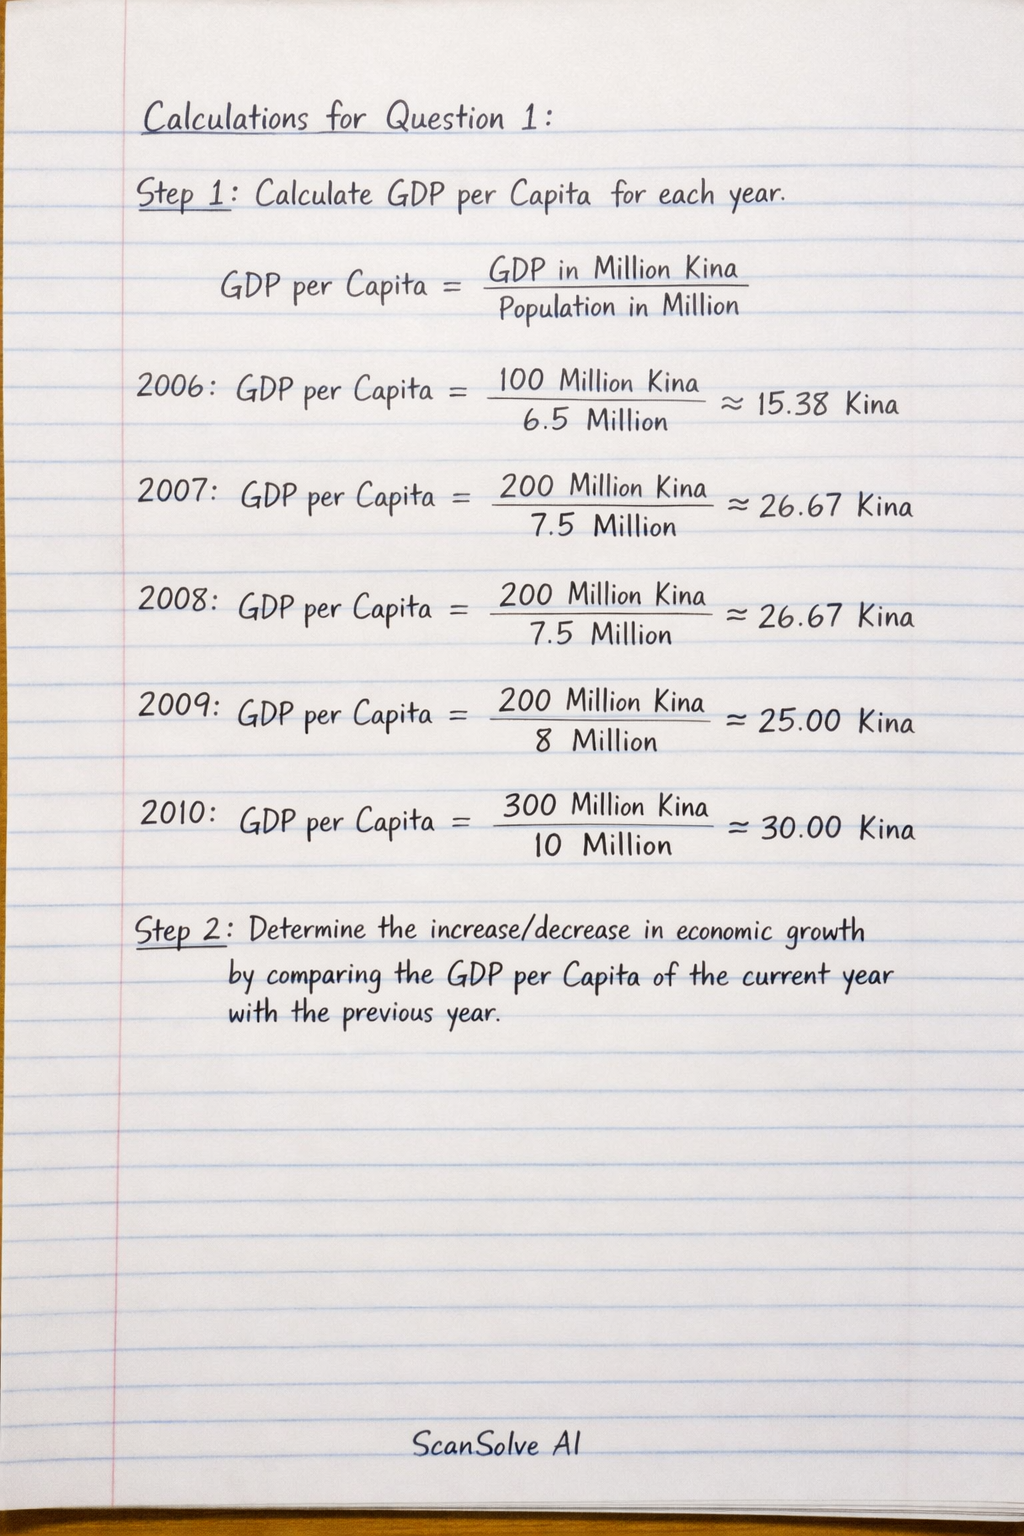 Calculations for Question 1:
Step 1: Calculate GDP per Capita for each year.
GDP per Capita = GDP in Million Kina / Population in Million
2006: GDP per Capita = 100 Million Kina / 6.5 Million ≈ 15.38 Kina
2007: GDP per Capita = 200 Million Kina / 7.5 Million ≈ 26.67 Kina
2008: GDP per Capita = 200 Million Kina / 7.5 Million ≈ 26.67 Kina
2009: GDP per Capita = 200 Million Kina / 8 Million ≈ 25.00 Kina
2010: GDP per Capita = 300 Million Kina / 10 Million ≈ 30.00 Kina
Step 2: Determine the increase/decrease in economic growth
by comparing the GDP per Capita of the current year
with the previous year.
ScanSolve AI